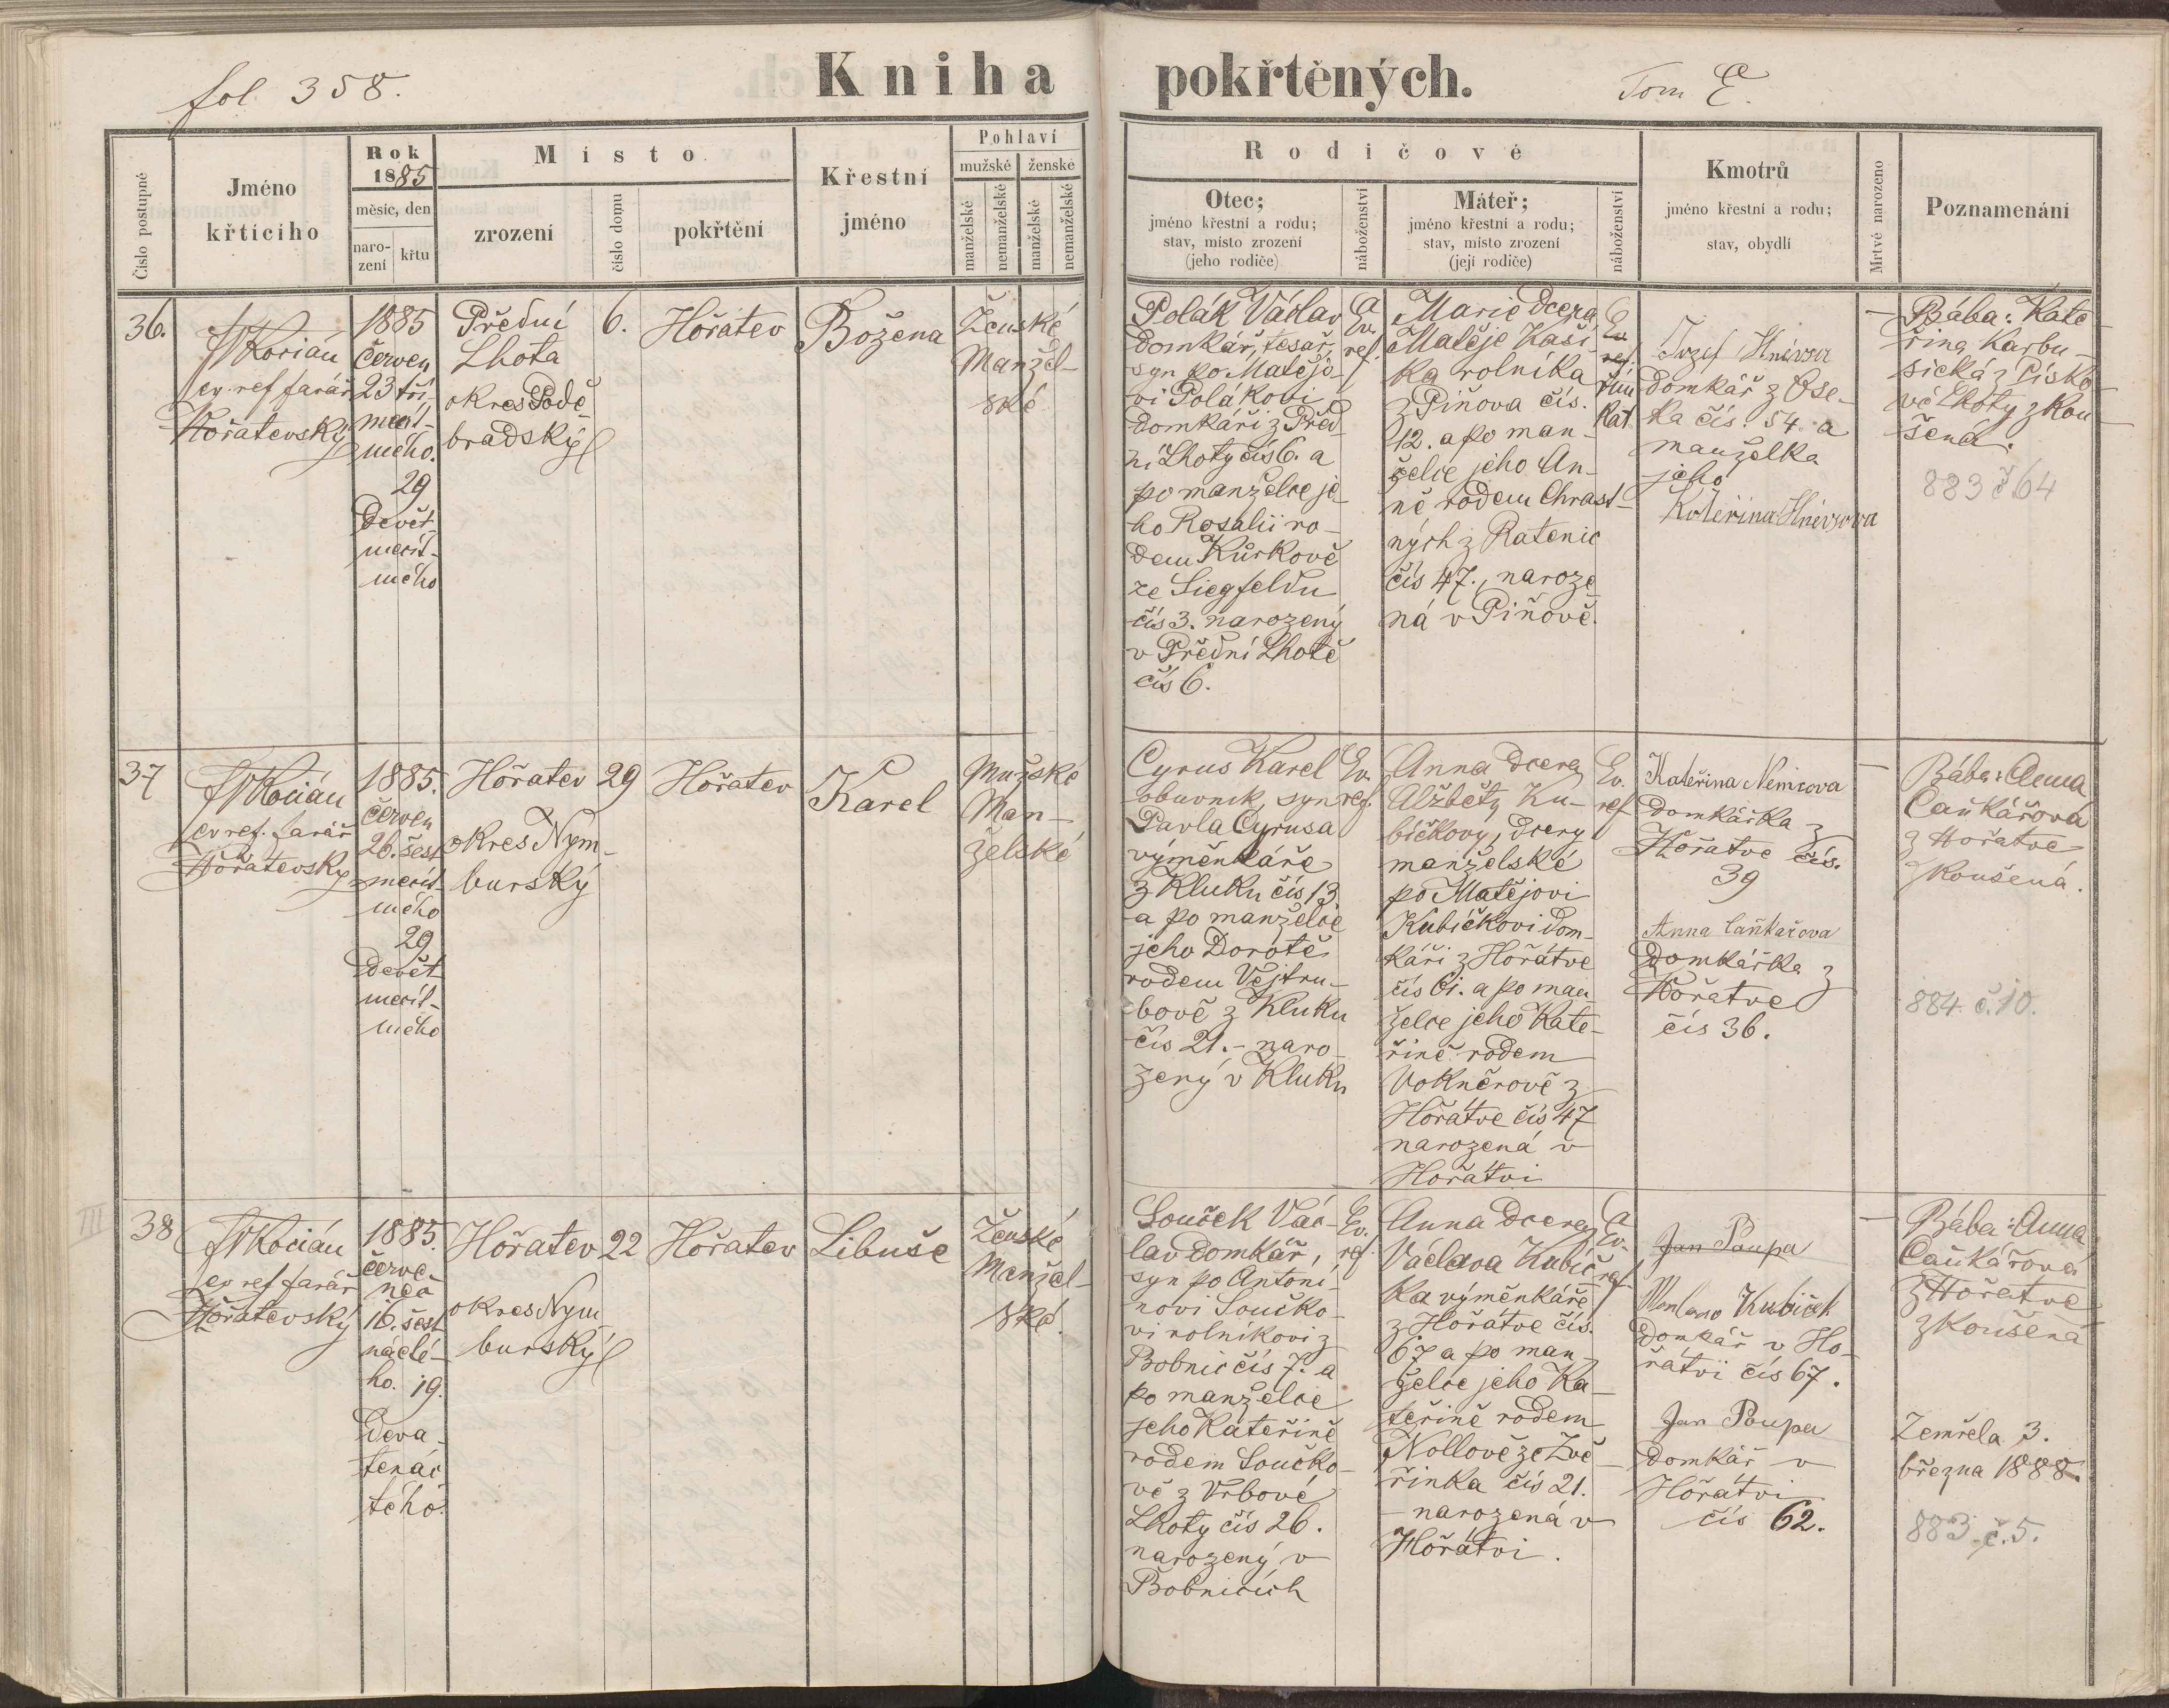 fol. 358.
Kniha pokřtěných.
Tom E.
Číslo postupné
Jméno
křtícího
Rok
1885
měsíc, den
naro-
zení
křtu
Místo
zrození
číslo domu
pokřtění
Křestní
jméno
Pohlaví
mužské
ženské
manželské
nemanželské
manželské
nemanželské
Rodičové
Otec;
jméno křestní a rodu;
stav, místo zrození
(jeho rodiče)
náboženství
Máteř;
jméno křestní a rodu;
stav, místo zrození
(její rodiče)
náboženství
Kmotrů
jméno křestní a rodu;
stav, obydlí
Mrtvé narozeno
Poznamenání
36.
Kocián
ev. ref farář
Hořátevský
1885
červen
23 tří-
mecít-
mého.
29
Devět-
mecít-
mého
Přední
Lhota
okres Podě-
bradský
6.
Hořátev
Božena
Ženské
Manžel-
ské
Polák Václav
domkář, tesař,
syn po Matějo-
vi Polákovi
domkáři z Před-
ní Lhoty čís 6. a
po manželce je-
ho Rosalii ro-
dem Kůrkově
ze Siegfeldu
čís 3. narozený
v Přední Lhotě
čís 6.
Ev.
ref.
Marie dcera
Matěje Kaší-
ka rolníka
z Piňova čís.
12. a po man-
želce jeho An-
ně rodem Chrast-
ných z Ratenic
čís 47., naroze
ná v Piňově.
Ev
ref.
Řím
Kat
Jozef Hnévsa
domkář z Ose-
ka čís. 54. a
manželka
jeho
Kateřina Hnévsova
—
Bába: Kate-
řina Karbu-
sická z Písko-
vé Lhoty zkou-
šená.
883 č 64
37
Kocián
ev ref. farář
Hořátevský
1885.
červen
26. šest
mecít-
mého
29
Devět
mecít-
mého
Hořátev
okres Nym-
burský
29
Hořátev
Karel
Mužské
Man-
želské
Cyrus Karel
obuvník, syn
Pavla Cyrusa
výměnkáře
z Kluku čís 13
a po manželce
jeho Dorotě
rodem Vejtru-
bově z Kluku
čís 21. - naro-
zený v Kluku
Ev.
ref.
Anna dcera
Alžběty Ku-
bíčkovy, dcery
manželské
po Matějovi
Kubíčkovi dom-
káři z Hořátve
čís 61. a po man
želce jeho Kate-
řině rodem
Vokněrově z
Hořátve čís 47
narozená v
Hořátvi
Ev.
ref
Kateřina Nemcova
domkářka z
Hořátve čís.
39
Anna Caňkařova
Domkářka z
Hořátve
čís 36.
—
Bába: Anna
Caňkářová
z Hořátve
zkoušená.
884 č. 10.
III
38
Kocián
ev ref farář
Hořátevský
1885.
červe-
nec
16. šest
nácté-
ho. 19.
Deva-
tenác
tého.
Hořátev
okres Nym
burský
22
Hořátev
Libuše
Ženské
Manžel-
ské.
Souček Vác-
lav domkář,
syn po Antoní-
novi Součko-
vi rolníkovi z
Bobnic čís 7. a
po manželce
jeho Kateřině
rodem Součko-
vé z Vrbové
Lhoty čís 26.
narozený v
Bobnicích
Ev.
ref.
Anna dcera
Václava Kubíč
ka výměnkáře
z Hořátve čís.
67 a po man-
želce jeho Ka-
teřině rodem
Nollově ze Zvě-
řínka čís 21.
- narozená v
Hořátvi.
Ev.
ref.
Jan Poupa
Kubíček
domkář v Ho-
řátvi čís 67.
Jan Poupa
Domkář v
Hořátvi
čís 62.
—
Bába: Anna
Caňkářová
z Hořátve
zkoušená
Zemřela 3.
března 1888.
883 č. 5.